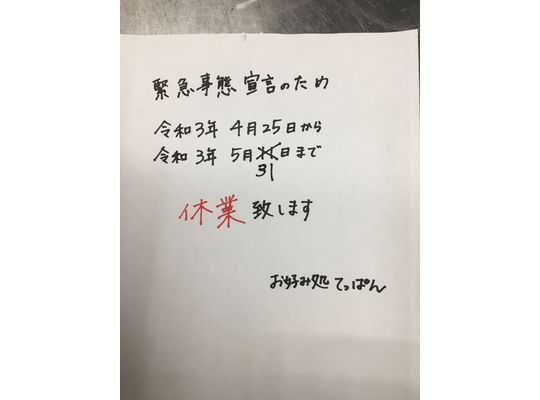 緊急事態宣言のため
令和3年 4月25日から
令和3年 5月日まで
31
休業致します
お好み処 てっぱん